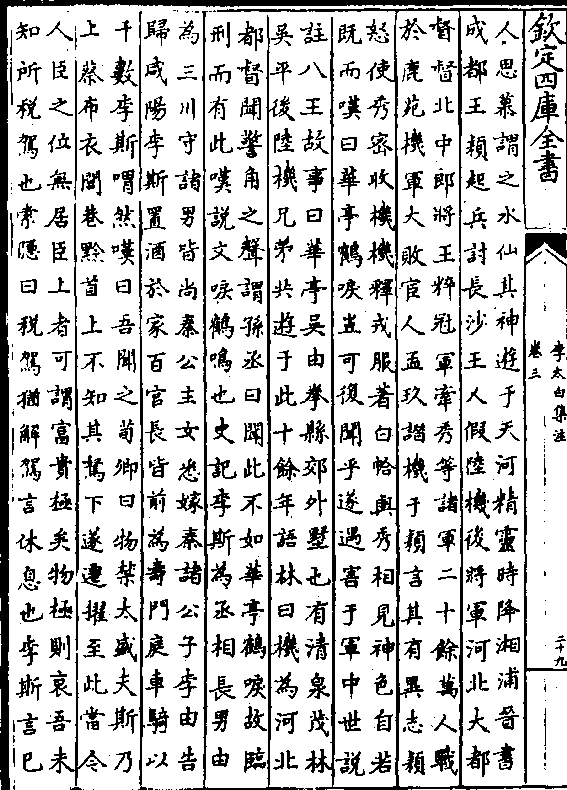 欽定四庫全書
李太白集注
卷三
二十九
人思慕謂之水仙其神遊于天河精靈時降湘浦晉書
成都王穎起兵討長沙王乂假陸機後將軍河北大都
督督北中郎將王粹冠軍牽秀等諸軍二十餘萬人戰
於鹿苑機軍大敗宦人孟玖譖機于穎言其有異志穎
怒使秀密收機機釋戎服著白帢與秀相見神色自若
既而嘆曰華亭鶴唳豈可復聞乎遂遇害于軍中世說
註八王故事曰華亭吳由拳縣郊外墅也有清泉茂林
吳平後陸機兄弟共遊于此十餘年語林曰機為河北
都督聞警角之聲謂孫丞曰聞此不如華亭鶴唳故臨
刑而有此嘆說文唳鶴鳴也史記李斯為丞相長男由
為三川守諸男皆尚秦公主女悉嫁秦諸公子李由告
歸咸陽李斯置酒於家百官長皆前為壽門庭車騎以
千數李斯喟然嘆曰吾聞之荀卿曰物禁太盛夫斯乃
上蔡布衣閭巷黔首上不知其駑下遂遷擢至此當今
人臣之位無居臣上者可謂富貴極矣物極則衰吾未
知所稅駕也索隱曰稅駕猶解駕言休息也李斯言已